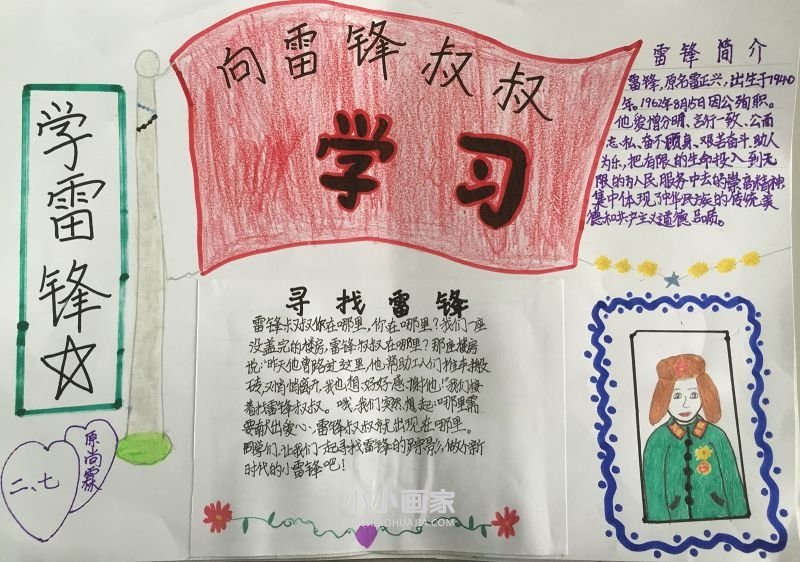 向雷锋叔叔
学习
学雷锋
雷锋简介
雷锋,原名雷正兴,出生于1940
年。1962年8月15日因公殉职。
他爱憎分明、言行一致、公而
忘私、奋不顾身、艰苦奋斗、助人
为乐,把有限的生命投入到无
限的为人民服务中去的崇高精神,
集中体现了中华民族的传统美
德和共产主义道德品质。
寻找雷锋
雷锋叔叔你在哪里,你在哪里?我们一座
没盖完的楼房,雷锋叔叔在哪里?那座楼房
说:“昨天他曾路过这里,他帮助工人们推车搬
砖,又悄悄离开,我也想好好感谢他!”我们接
着找雷锋叔叔。哦,我们突然想起:哪里需
要献出爱心,雷锋叔叔就出现在哪里。
同学们,让我们一起寻找雷锋的身影,做个新
时代的小雷锋吧!
二、七
原尚霖
小小画家
XIAOHUAJIA.COM